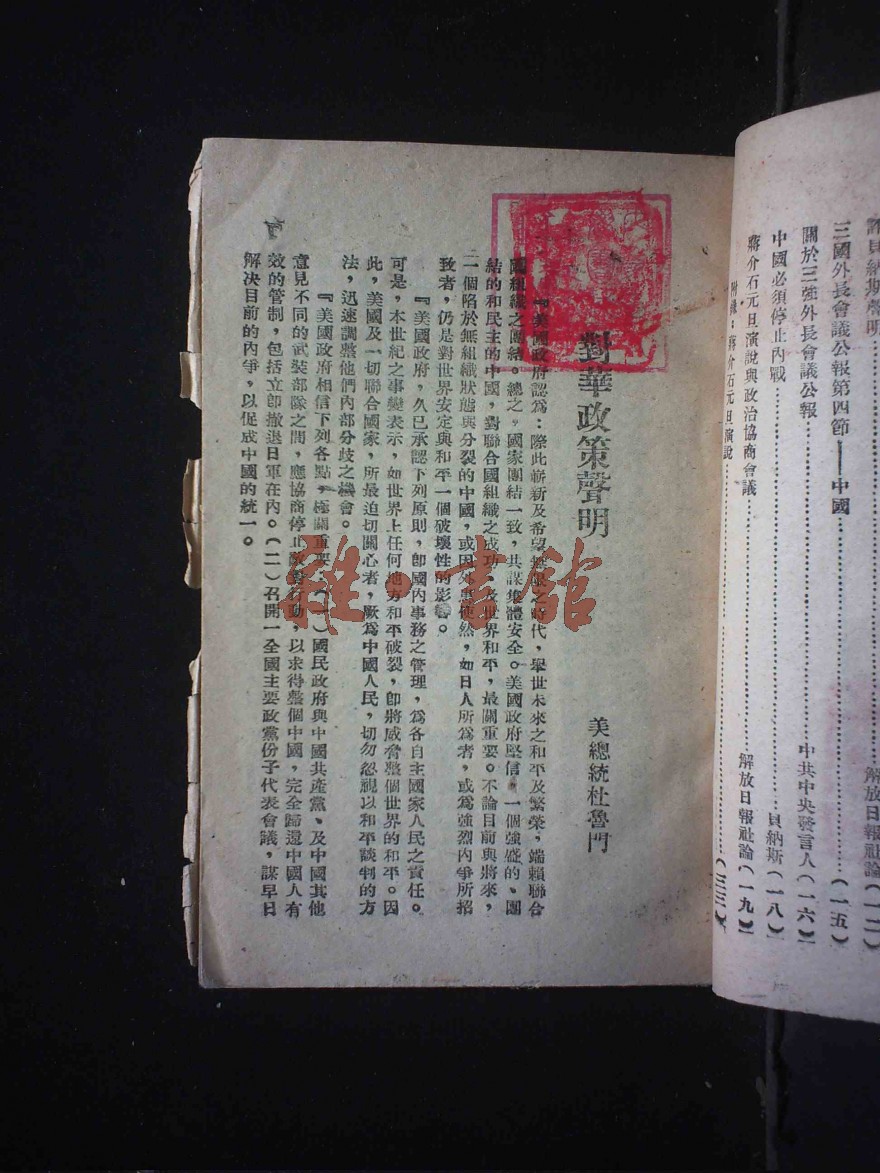 評貝納斯聲明………解放日報社論(一二)
三國外長會議公報第四節——中國………(一五)
關於三強外長會議公報………中共中央發言人(一六)
中國必須停止內戰………貝納斯(一八)
蔣介石元旦演說與政治協商會議………解放日報社論(一九)
附錄:蔣介石元旦演說………(二三)
對華政策聲明
美總統杜魯門
『美國政府認爲:際此嶄新及希望無限之時代,舉世未來之和平及繁榮,端賴聯合
國組織之團結。總之,國家團結一致,共謀集體安全。美國政府堅信,一個強盛的、團
結的和民主的中國,對聯合國組織之成功,及世界和平,最關重要。不論目前與將來,
一個陷於無組織狀態與分裂的中國,或因外患使然,如日人所爲者,或爲強烈內爭所招
致者,仍是對世界安定與和平一個破壞性的影響。
『美國政府,久已承認下列原則,卽國內事務之管理,爲各自主國家人民之責任。
可是,本世紀之事變表示,如世界上任何地方和平破裂,卽將威脅整個世界的和平。因
此,美國及一切聯合國家,所最迫切關心者,厥爲中國人民,切勿忽視以和平談判的方
法,迅速調整他們內部分歧之機會。
『美國政府相信下列各點,極關重要:(一)國民政府與中國共產黨、及中國其他
意見不同的武裝部隊之間,應協商停止敵對行動,以求得整個中國,完全歸還中國人有
效的管制,包括立卽撤退日軍在內。(二)召開一全國主要政黨份子代表會議,謀早日
解决目前的內爭,以促成中國的統一。
雜·書館